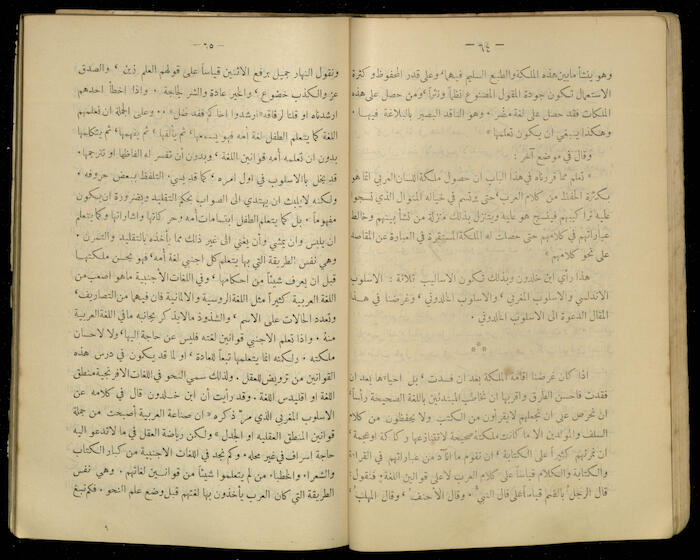 — ٦٤ —
وهو ينشأ مابين هذه الملكة والطبع السليم فيهما وعلى قدر المحفوظ وكثرة
الاستعمال تكون جودة المقول المصنوع نظماً ونثراً ومن حصل على هذه
الملكات فقد حصل على لغة مضر. وهو الناقد البصير بالبلاغة فيها.
وهكذا ينبغي ان يكون تعلمها»
وقال في موضع آخر:
« تعلم مما قررناه في هذا الباب ان حصول ملكة اللسان العربي انما هو
بكثرة الحفظ من كلام العرب حتى يرتسم في خياله المنوال الذي نسجوا
عليه تراكيبهم فينسج هو عليه ويتنزل بذلك منزلة من نشأ بينهم وخالط
عباراتهم في كلامهم حتى حصلت له الملكة المستقرة في العبارة عن المقاصد
على نحو كلامهم »
هذا رأي ابن خلدون وبذلك تكون الاساليب ثلاثة: الاسلوب
الاندلسي والاسلوب المغربي، والاسلوب الخلدوني، وغرضنا في هذا
المقال الدعوة الى الاسلوب الخلدوني.
***
اذا كان غرضنا اقامة الملكة بعد ان فسدت، بل احياءها بعد ان
فقدت فاحسن الطرق واقربها ان نخاطب المبتدئين باللغة الصحيحة رأساً،
ثم نحرص على ان نجعلهم لا يقرأون من الكتب ولا يحفظون من كلام
السلف والمولدين الا ما كانت ملكته صحيحة لا تقتادعها ركاكة او عجمة،
ثم نمرنهم كثيراً على الكتابة، ثم نقوم ما انآد من عباراتهم في القراءة
والكتابة والكلام قياساً على كلام العرب لا على قوانين اللغة. فنقول:
قال الرجلُ بالضم قياساً على قال النبيُّ. وقال الاحنفُ، وقال المهلبُ،
— ٦٥ —
ونقول النهار جميل برفع الاثنين قياساً على قولهم العلم زين، والصدق
عز والكذب خضوع، والخير عادة والشر لجاجة. واذا اخطأ احدهم
ارشدناه او قلنا لرفاقه «ارشدوا اخاكم فقد ضل».. وعلى الجملة ان تعلمهم
اللغة كما يتعلم الطفل لغة أمه فهو يسمعها، ثم يألفها، ثم يفهمها، ثم يتكلمها
بدون ان تعلمه أمه قوانين اللغة، وبدون أن تفسر له الفاظها او تترجمها.
قد يخل بالاسلوب في اول امره، كما قد يسيء التلفظ ببعض حروفه.
ولكنه لا يلبث ان يهتدي الى الصواب بحكم التقليد وبضرورة ان يكون
مفهوماً. بل كما يتعلم الطفل ابتسامات أمه وحركاتها واشاراتها وكما يتعلم
ان يلبس وان يمشي وأن يغني الى غير ذلك مما يأخذه بالتقليد والتمرن.
وهي نفس الطريقة التي بها يتعلم كل اجنبي لغة أمه فهو يحسن ملكتها
قبل ان يعرف شيئاً من احكامها، وفي اللغات الأجنبية ما هو اصعب من
اللغة العربية كثيراً مثل اللغة الروسية والالمانية فان فيهما من التصاريف،
وتعدد الحالات على الاسم، والشذوذ مالا يذكر بجانبه مافي اللغة العربية
منه. واذا تعلم الاجنبي قوانين لغته فليس عن حاجة اليها، ولا لاحسان
ملكته. ولكنه انما يتعلمها تبعاً للعادة، او لما قد يكون في درس هذه
القوانين من ترويض للعقل. ولذلك سمي النحو في اللغات الافرنجية منطق
اللغة او اقليدس اللغة. وقد رأيت أن ابن خلدون قال في كلامه عن
الاسلوب المغربي الذي مرّ ذكره «ان صناعة العربية أصبحت من جملة
قوانين المنطق العقلية او الجدل» ولكن رياضة العقل في ما لا تدعو اليه
حاجة اسراف في غير محله. وكم نجد في اللغات الاجنبية من كبار الكتاب
والشعراء والخطباء من لم يتعلموا شيئاً من قوانين لغاتهم. وهي نفس
الطريقة التي كان العرب يأخذون بها لغتهم قبل وضع علم النحو. فكم نبغ